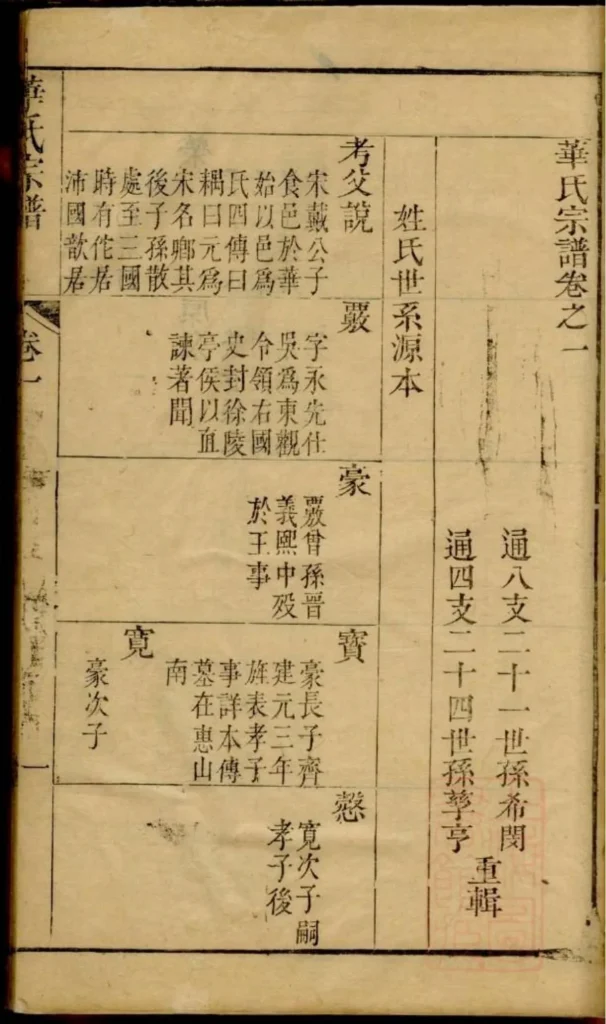 華氏宗譜卷之一
通八支二十一世孫希閔
通四支二十四世孫孳亨
重輯
姓氏世系源本
考父說
宋戴公子
食邑於華
始以邑爲
氏四傳曰
耦曰元爲
宋名卿其
後子孫散
處至三國
時有佗居
沛國歆居
覈
字永先仕
吳爲東觀
令領右國
史封徐陵
亭侯以直
諫著聞
豪
覈曾孫晉
義熙中歿
於王事
寶
豪長子齊
建元三年
旌表孝子
事詳本傳
墓在惠山
南
寬
豪次子
愨
寬次子嗣
孝子後
華氏宗譜
卷一
一